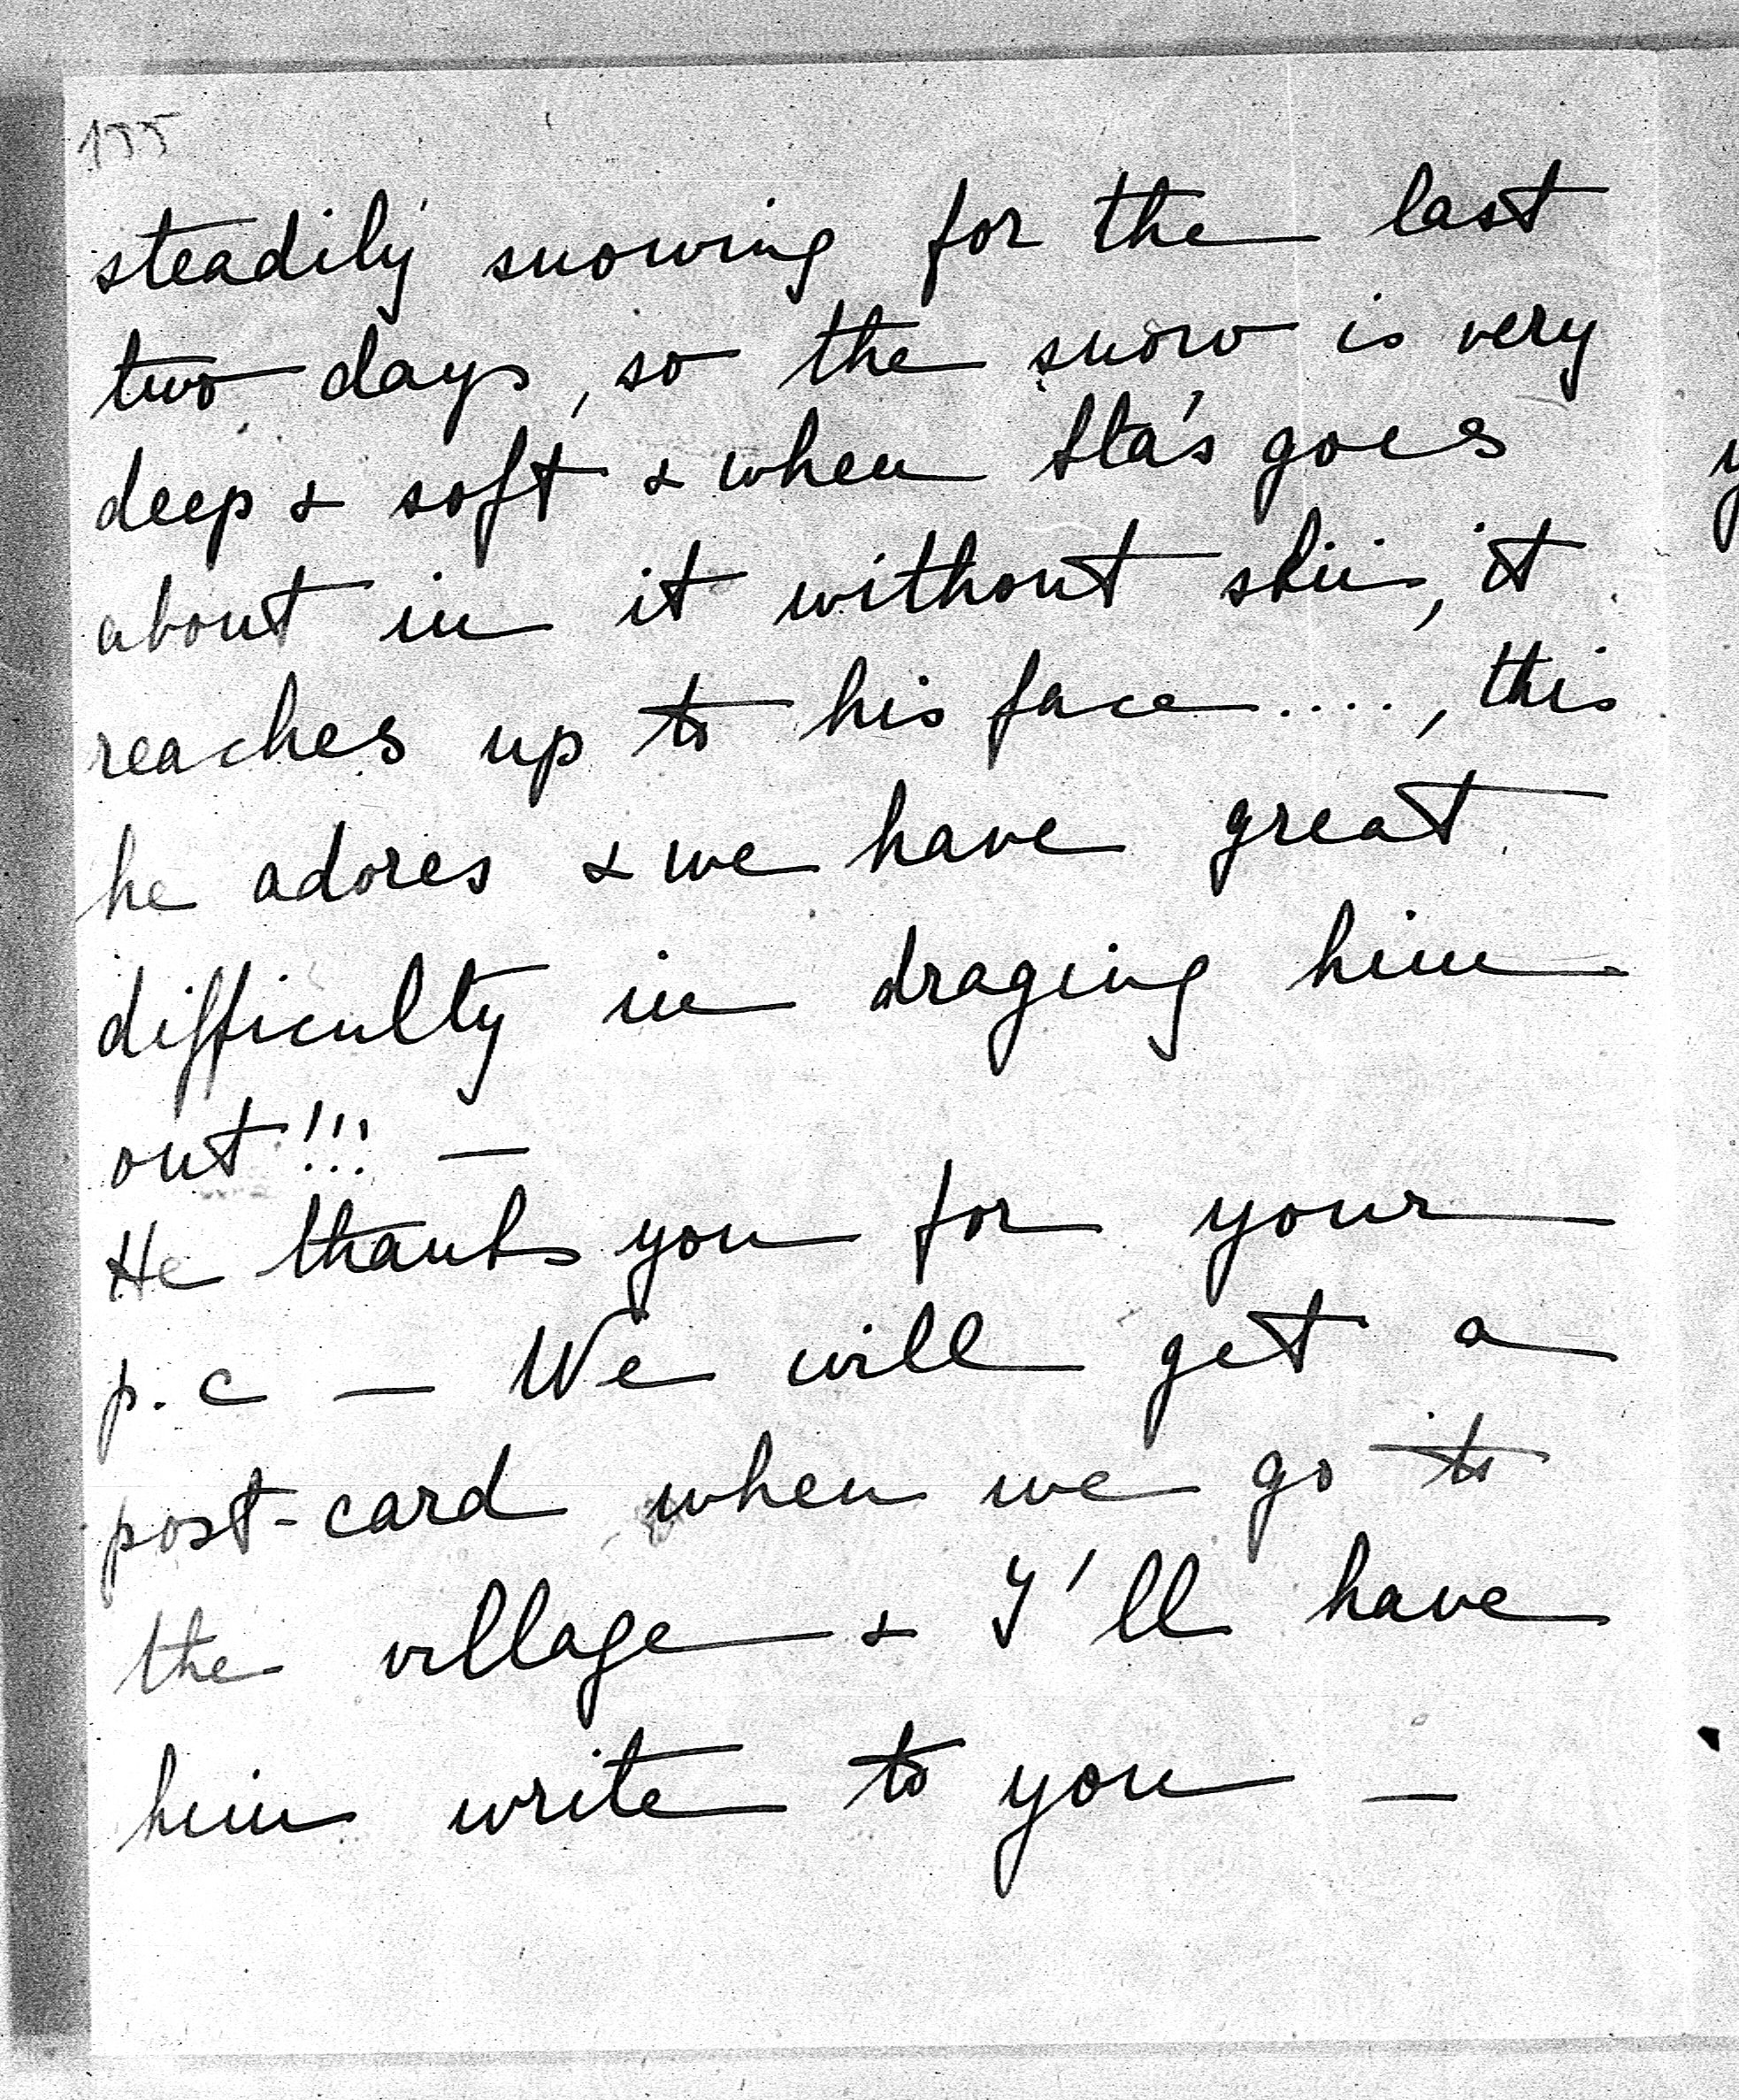 155
steadily snowing for the last
two days, so the snow is very
deep & soft & when Staś goes
about in it without skiis, it
reaches up to his face ...., this
he adores & we have great
difficulty in draging him
out!!! —
He thanks you for your
p.c — We will get a
post-card when we go to
the village & I'll have
him write to you —